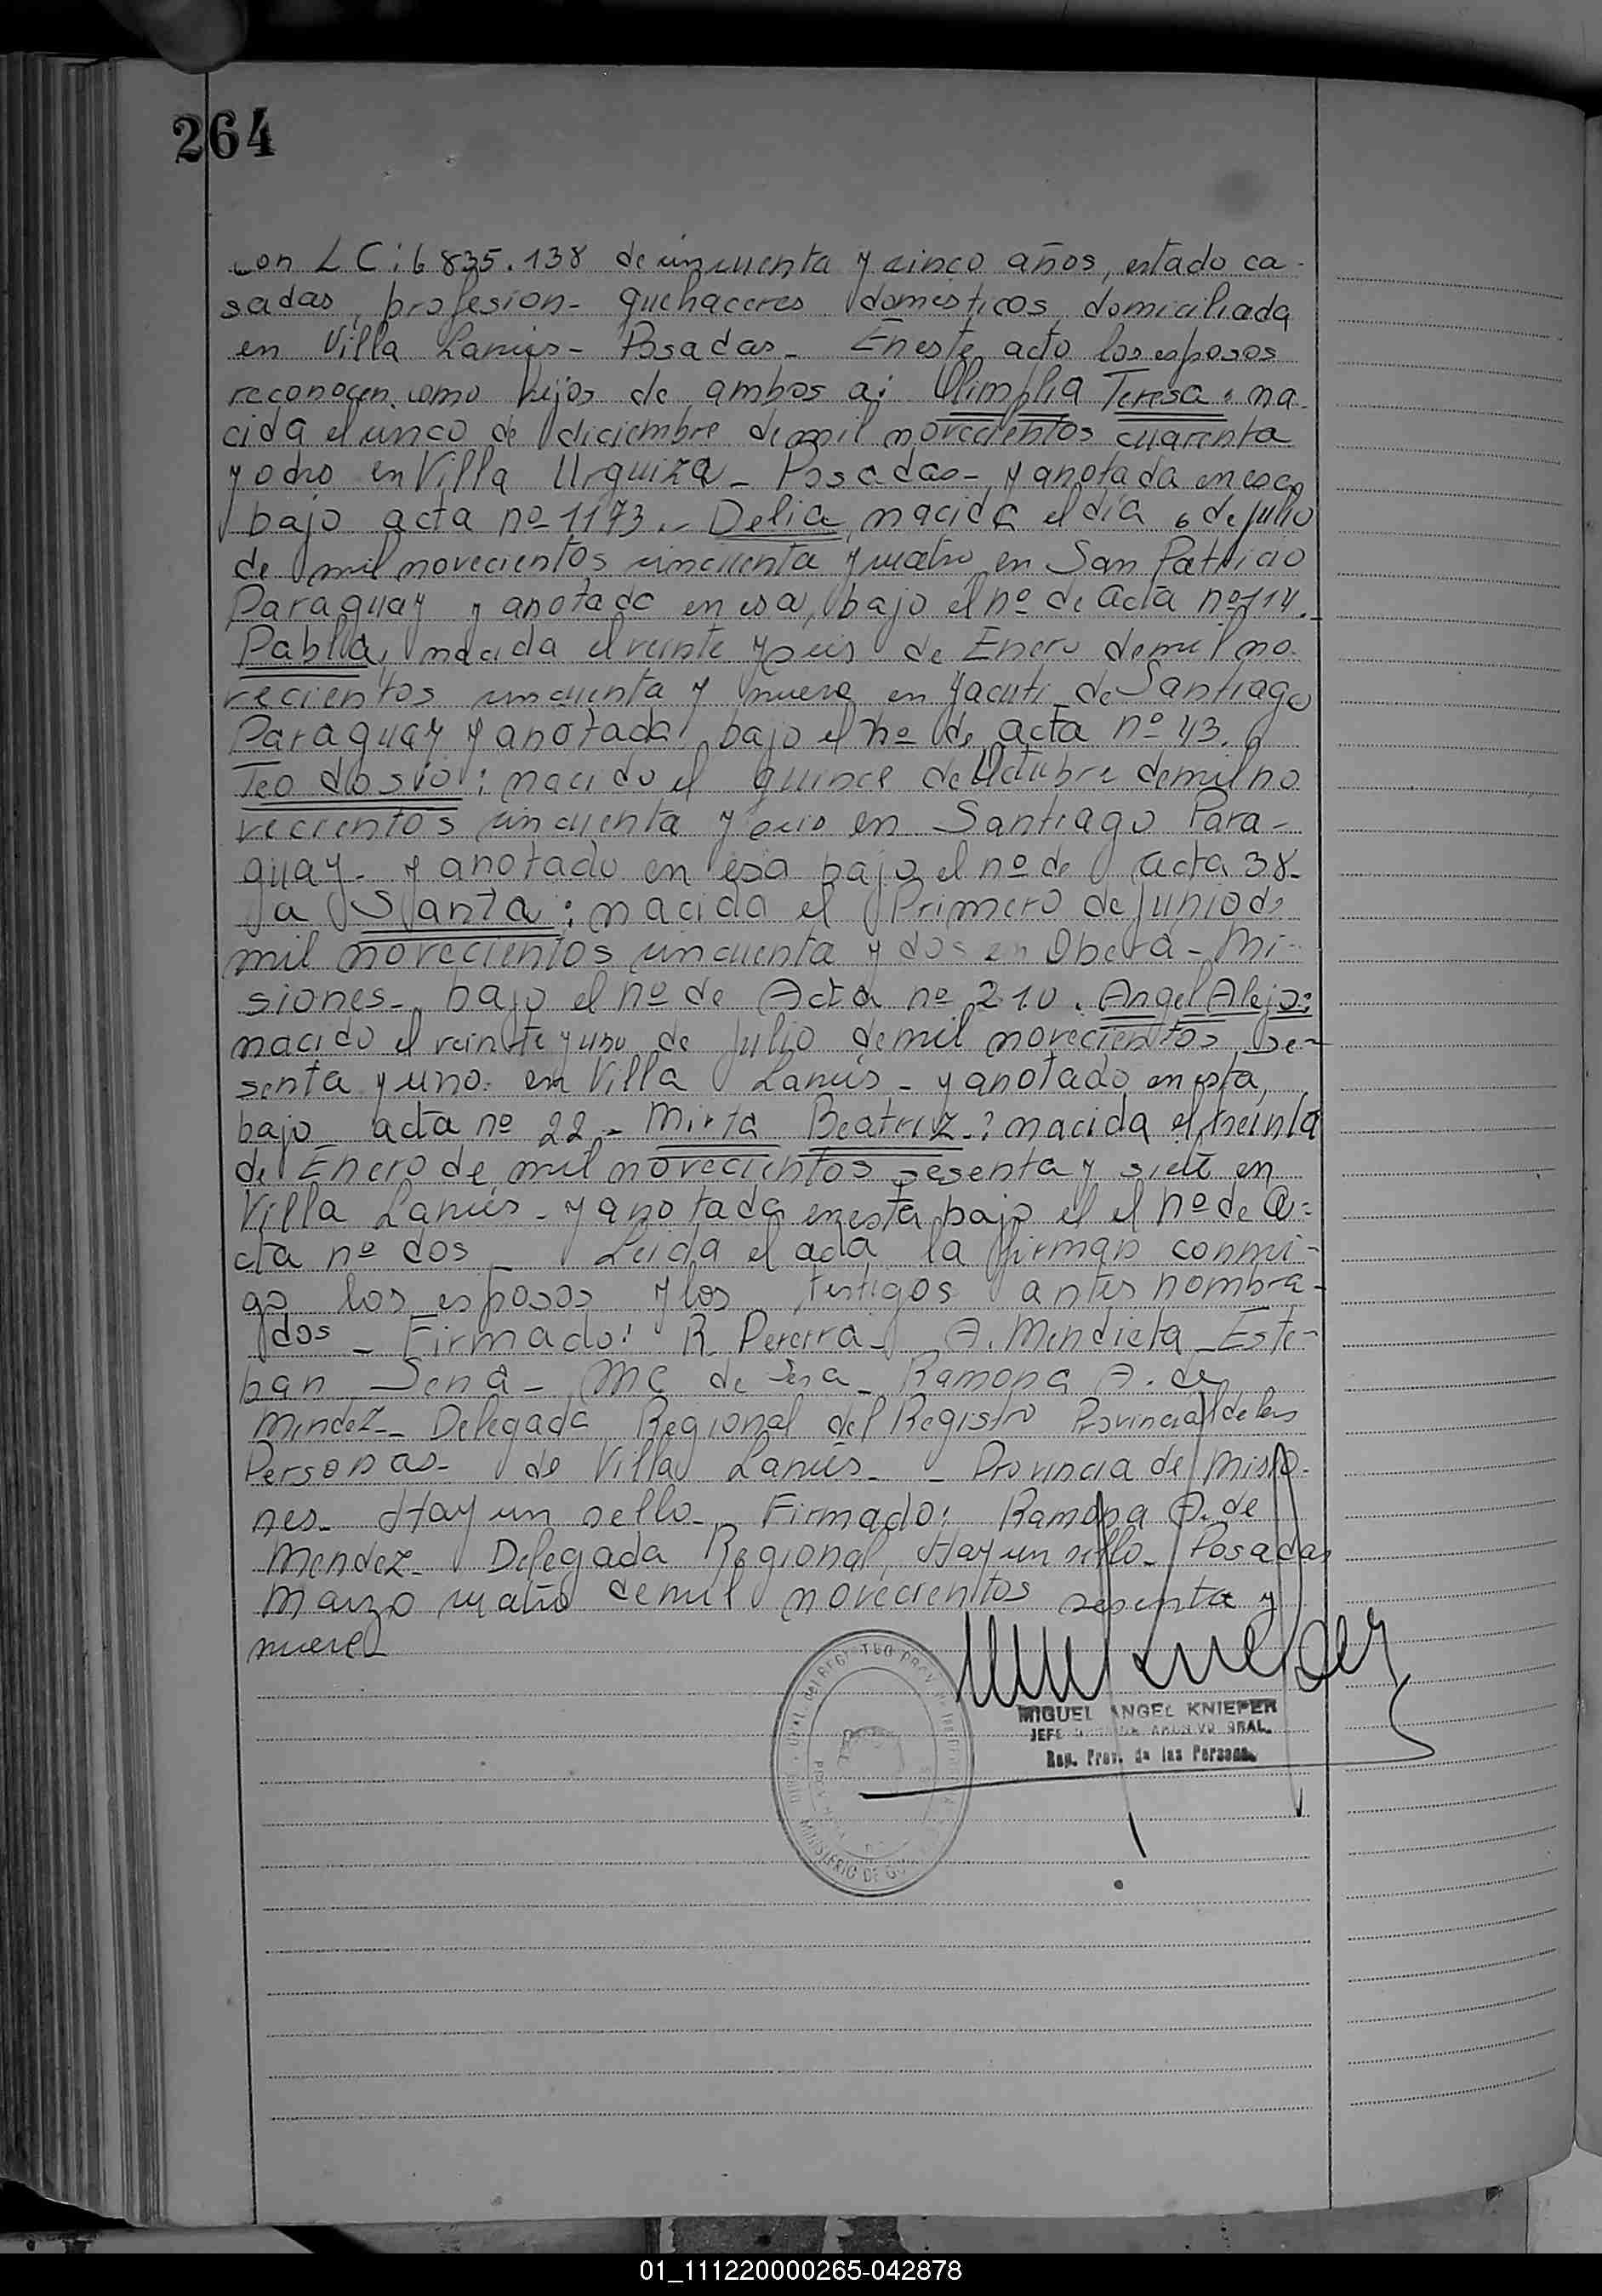 264
con L C: 6 835.138 de cincuenta y cinco años, estado ca-
sadas, profesion- quehaceres domésticos, domiciliada
en Villa Lanús- Posadas- En este acto los esposos
reconocen como hijos de ambos a: Olimplia Teresa: na-
cida el cinco de diciembre de mil novecientos cuarenta
y ocho en Villa Urquiza- Posadas- y anotada en esa
bajo acta nº 1173.- Delia, nacida el día 6 de julio
de mil novecientos cincuenta y cuatro en San Patricio
Paraguay y anotada en esa, bajo el nº de acta nº 114.-
Pablla, nacida el veinte y seis de Enero de mil no-
vecientos cincuenta y nueve en Yacuti de Santiago
Paraguay y anotada bajo el nº de acta nº 43.
Teodosio: nacido el quince de Octubre de mil no
vecientos cincuenta y seis en Santiago Para-
guay- y anotado en esa bajo el nº de acta 38-
a Santa: nacida el Primero de Junio de
mil novecientos cincuenta y dos en Obera- Mi-
siones- bajo el nº de Acta nº 210. Angel Alejo:
nacido el veinte y uno de Julio de mil novecientos se-
senta y uno en Villa Lanús- y anotado en esta,
bajo acta nº 22- Mirta Beatriz-: nacida el treinta
de Enero de mil novecientos sesenta y siete en
Villa Lanús- y anotada en esta bajo el el nº de a-
cta nº dos- Leida el acta la firman conmi-
go los esposos y los testigos antes nombra-
dos- Firmado: R Pereira- A. Mendieta- Este-
ban Sena- MC de Sena- Ramona A. de
Mendez- Delegada Regional del Registro Provincial de las
Personas- de Villa Lanús- - Provincia de Misio-
nes- Hay un sello- Firmado: Ramona A. de
Mendez- Delegada Regional, Hay un sello- Posadas
Marzo cuatro de mil novecientos sesenta y
nueve-
MIGUEL ANGEL KNIEPER
JEFE GRAL.
Reg. Prov. de las Personas
MINISTERIO DE
01_111220000265-042878